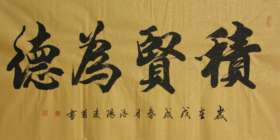 積賢為德
歲在戊戌春月洛陽